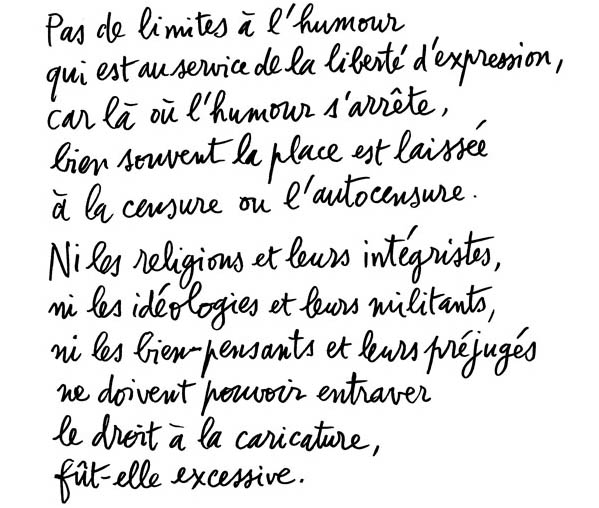 Pas de limites à l'humour
qui est au service de la liberté d'expression,
car là où l'humour s'arrête,
bien souvent la place est laissée
à la censure ou l'autocensure.
Ni les religions et leurs intégristes,
ni les idéologies et leurs militants,
ni les bien-pensants et leurs préjugés
ne doivent pouvoir entraver
le droit à la caricature,
fût-elle excessive.